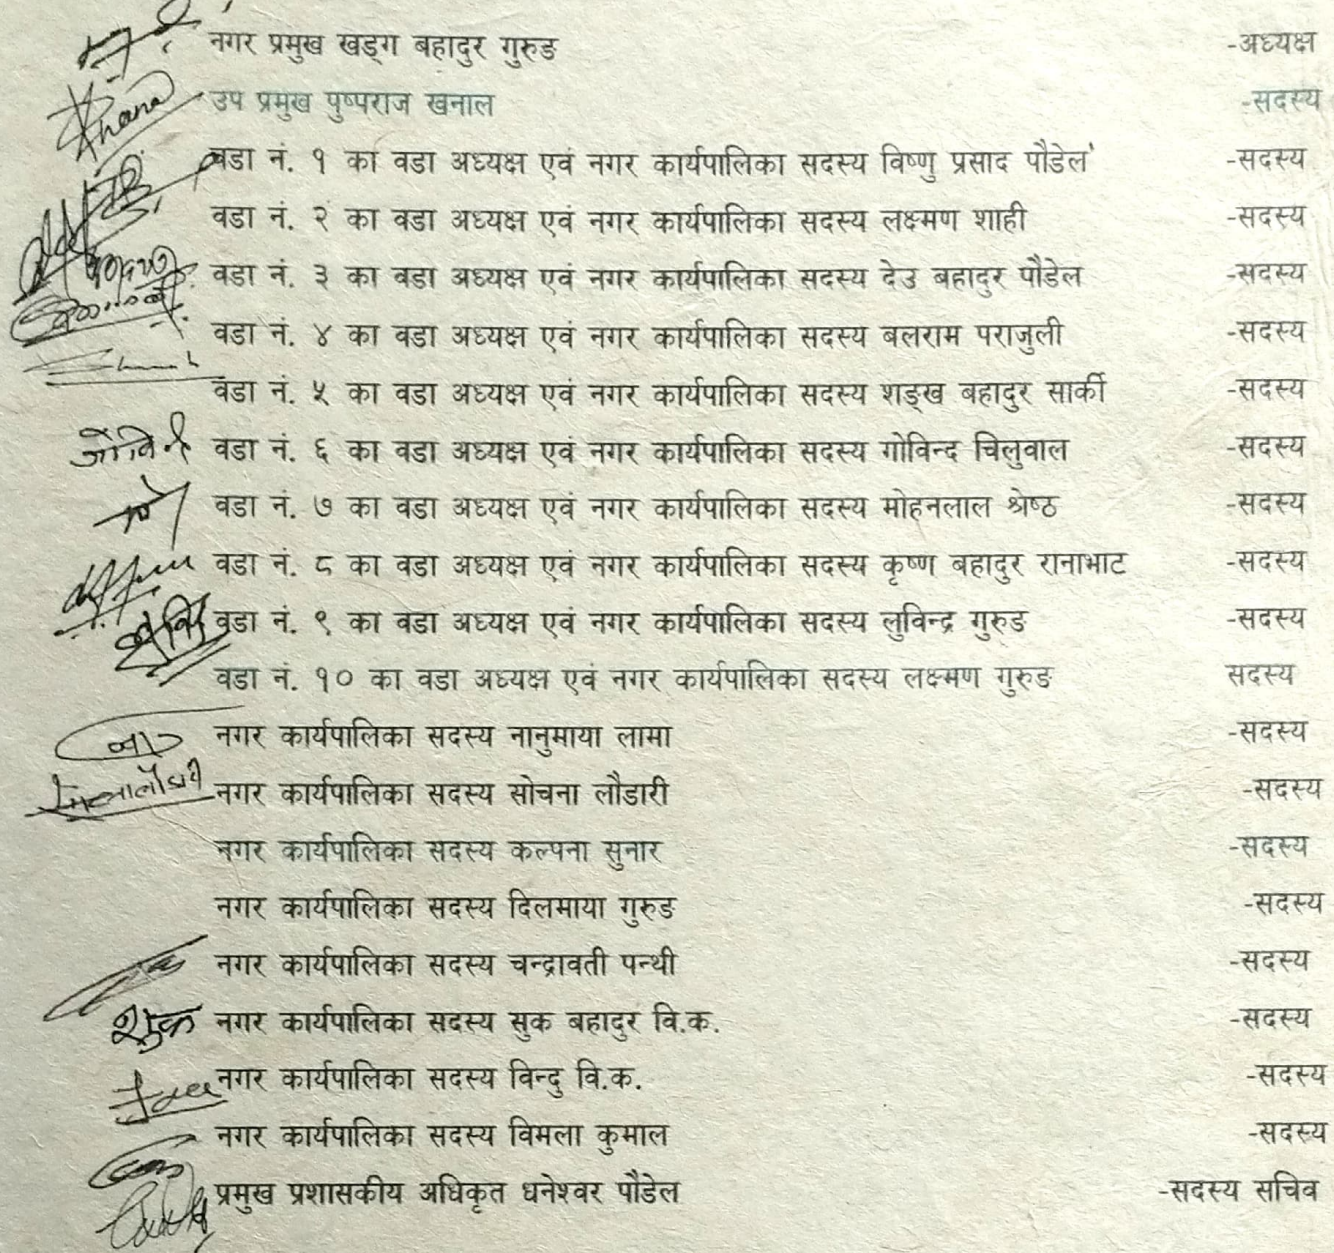 नगर प्रमुख खड्ग बहादुर गुरुङ -अध्यक्ष
उप प्रमुख पुष्पराज खनाल -सदस्य
वडा नं. १ का वडा अध्यक्ष एवं नगर कार्यपालिका सदस्य विष्णु प्रसाद पौडेल -सदस्य
वडा नं. २ का वडा अध्यक्ष एवं नगर कार्यपालिका सदस्य लक्ष्मण शाही -सदस्य
वडा नं. ३ का वडा अध्यक्ष एवं नगर कार्यपालिका सदस्य देउ बहादुर पौडेल -सदस्य
वडा नं. ४ का वडा अध्यक्ष एवं नगर कार्यपालिका सदस्य बलराम पराजुली -सदस्य
वडा नं. ५ का वडा अध्यक्ष एवं नगर कार्यपालिका सदस्य शङ्ख बहादुर सार्की -सदस्य
वडा नं. ६ का वडा अध्यक्ष एवं नगर कार्यपालिका सदस्य गोविन्द चिलुवाल -सदस्य
वडा नं. ७ का वडा अध्यक्ष एवं नगर कार्यपालिका सदस्य मोहनलाल श्रेष्ठ -सदस्य
वडा नं. ८ का वडा अध्यक्ष एवं नगर कार्यपालिका सदस्य कृष्ण बहादुर रानाभाट -सदस्य
वडा नं. ९ का वडा अध्यक्ष एवं नगर कार्यपालिका सदस्य लुविन्द्र गुरुङ -सदस्य
वडा नं. १० का वडा अध्यक्ष एवं नगर कार्यपालिका सदस्य लक्ष्मण गुरुङ सदस्य
नगर कार्यपालिका सदस्य नानुमाया लामा -सदस्य
नगर कार्यपालिका सदस्य सोचना लौडारी -सदस्य
नगर कार्यपालिका सदस्य कल्पना सुनार -सदस्य
नगर कार्यपालिका सदस्य दिलमाया गुरुङ -सदस्य
नगर कार्यपालिका सदस्य चन्द्रावती पन्थी -सदस्य
नगर कार्यपालिका सदस्य सुक बहादुर वि.क. -सदस्य
नगर कार्यपालिका सदस्य विन्दु वि.क. -सदस्य
नगर कार्यपालिका सदस्य विमला कुमाल -सदस्य
प्रमुख प्रशासकीय अधिकृत धनेश्वर पौडेल -सदस्य सचिव